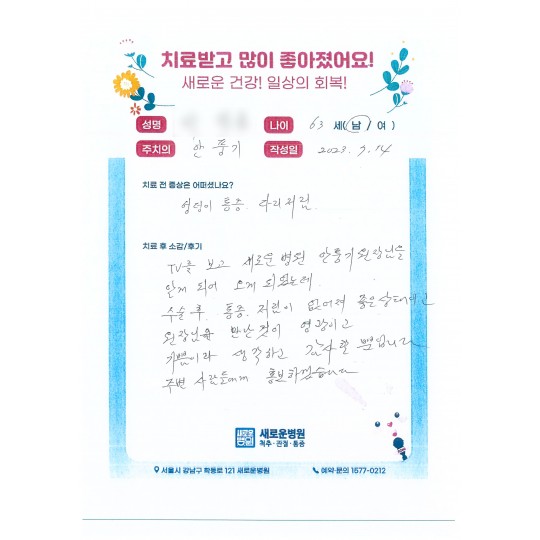 치료받고 많이 좋아졌어요!
새로운 건강! 일상의 회복!
성명
나이 63 세( 남 / 여 )
주치의 안풍기
작성일 2023. 9. 14
치료 전 증상은 어떠셨나요?
엉덩이 통증. 다리저림.
치료 후 소감/후기
TV를 보고 새로운 병원 안풍기 원장님을
알게 되어 오게 되었는데
수술 후 통증 저린이 없어져 좋은상태이고
원장님을 만난것이 영광이고
기쁨이라 생각하고 감사할 뿐입니다
주변 사람들에게 홍보하겠습니다
새로운병원
척추·관절·통증
서울시 강남구 학동로 121 새로운병원
예약·문의 1577-0212